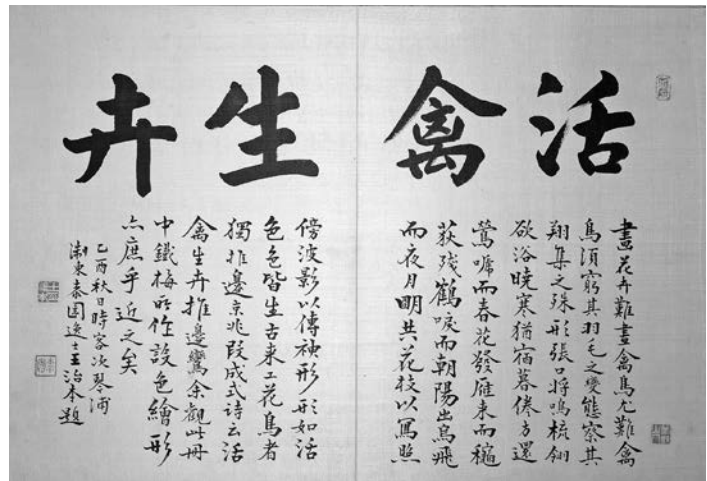 活禽生卉
畫花卉難畫禽鳥尤難禽
鳥須窮其羽毛之變態察其
翔集之殊形張口將鳴梳翎
欲浴曉寒猶宿暮倦方還
鶯嚦而春花發雁來而穐
荻殘鶴唳而朝陽出烏飛
而夜月明共花枝以寫照
傍波影以傳神形形如活
色色皆生古來工花鳥者
獨推邊京兆段成式詩云活
禽生卉推邊鸞余觀此冊
中鐵梅所作設色繪形
亦庶乎近之矣
乙酉秋日時客次琴浦
淛東泰園逸士王治本題